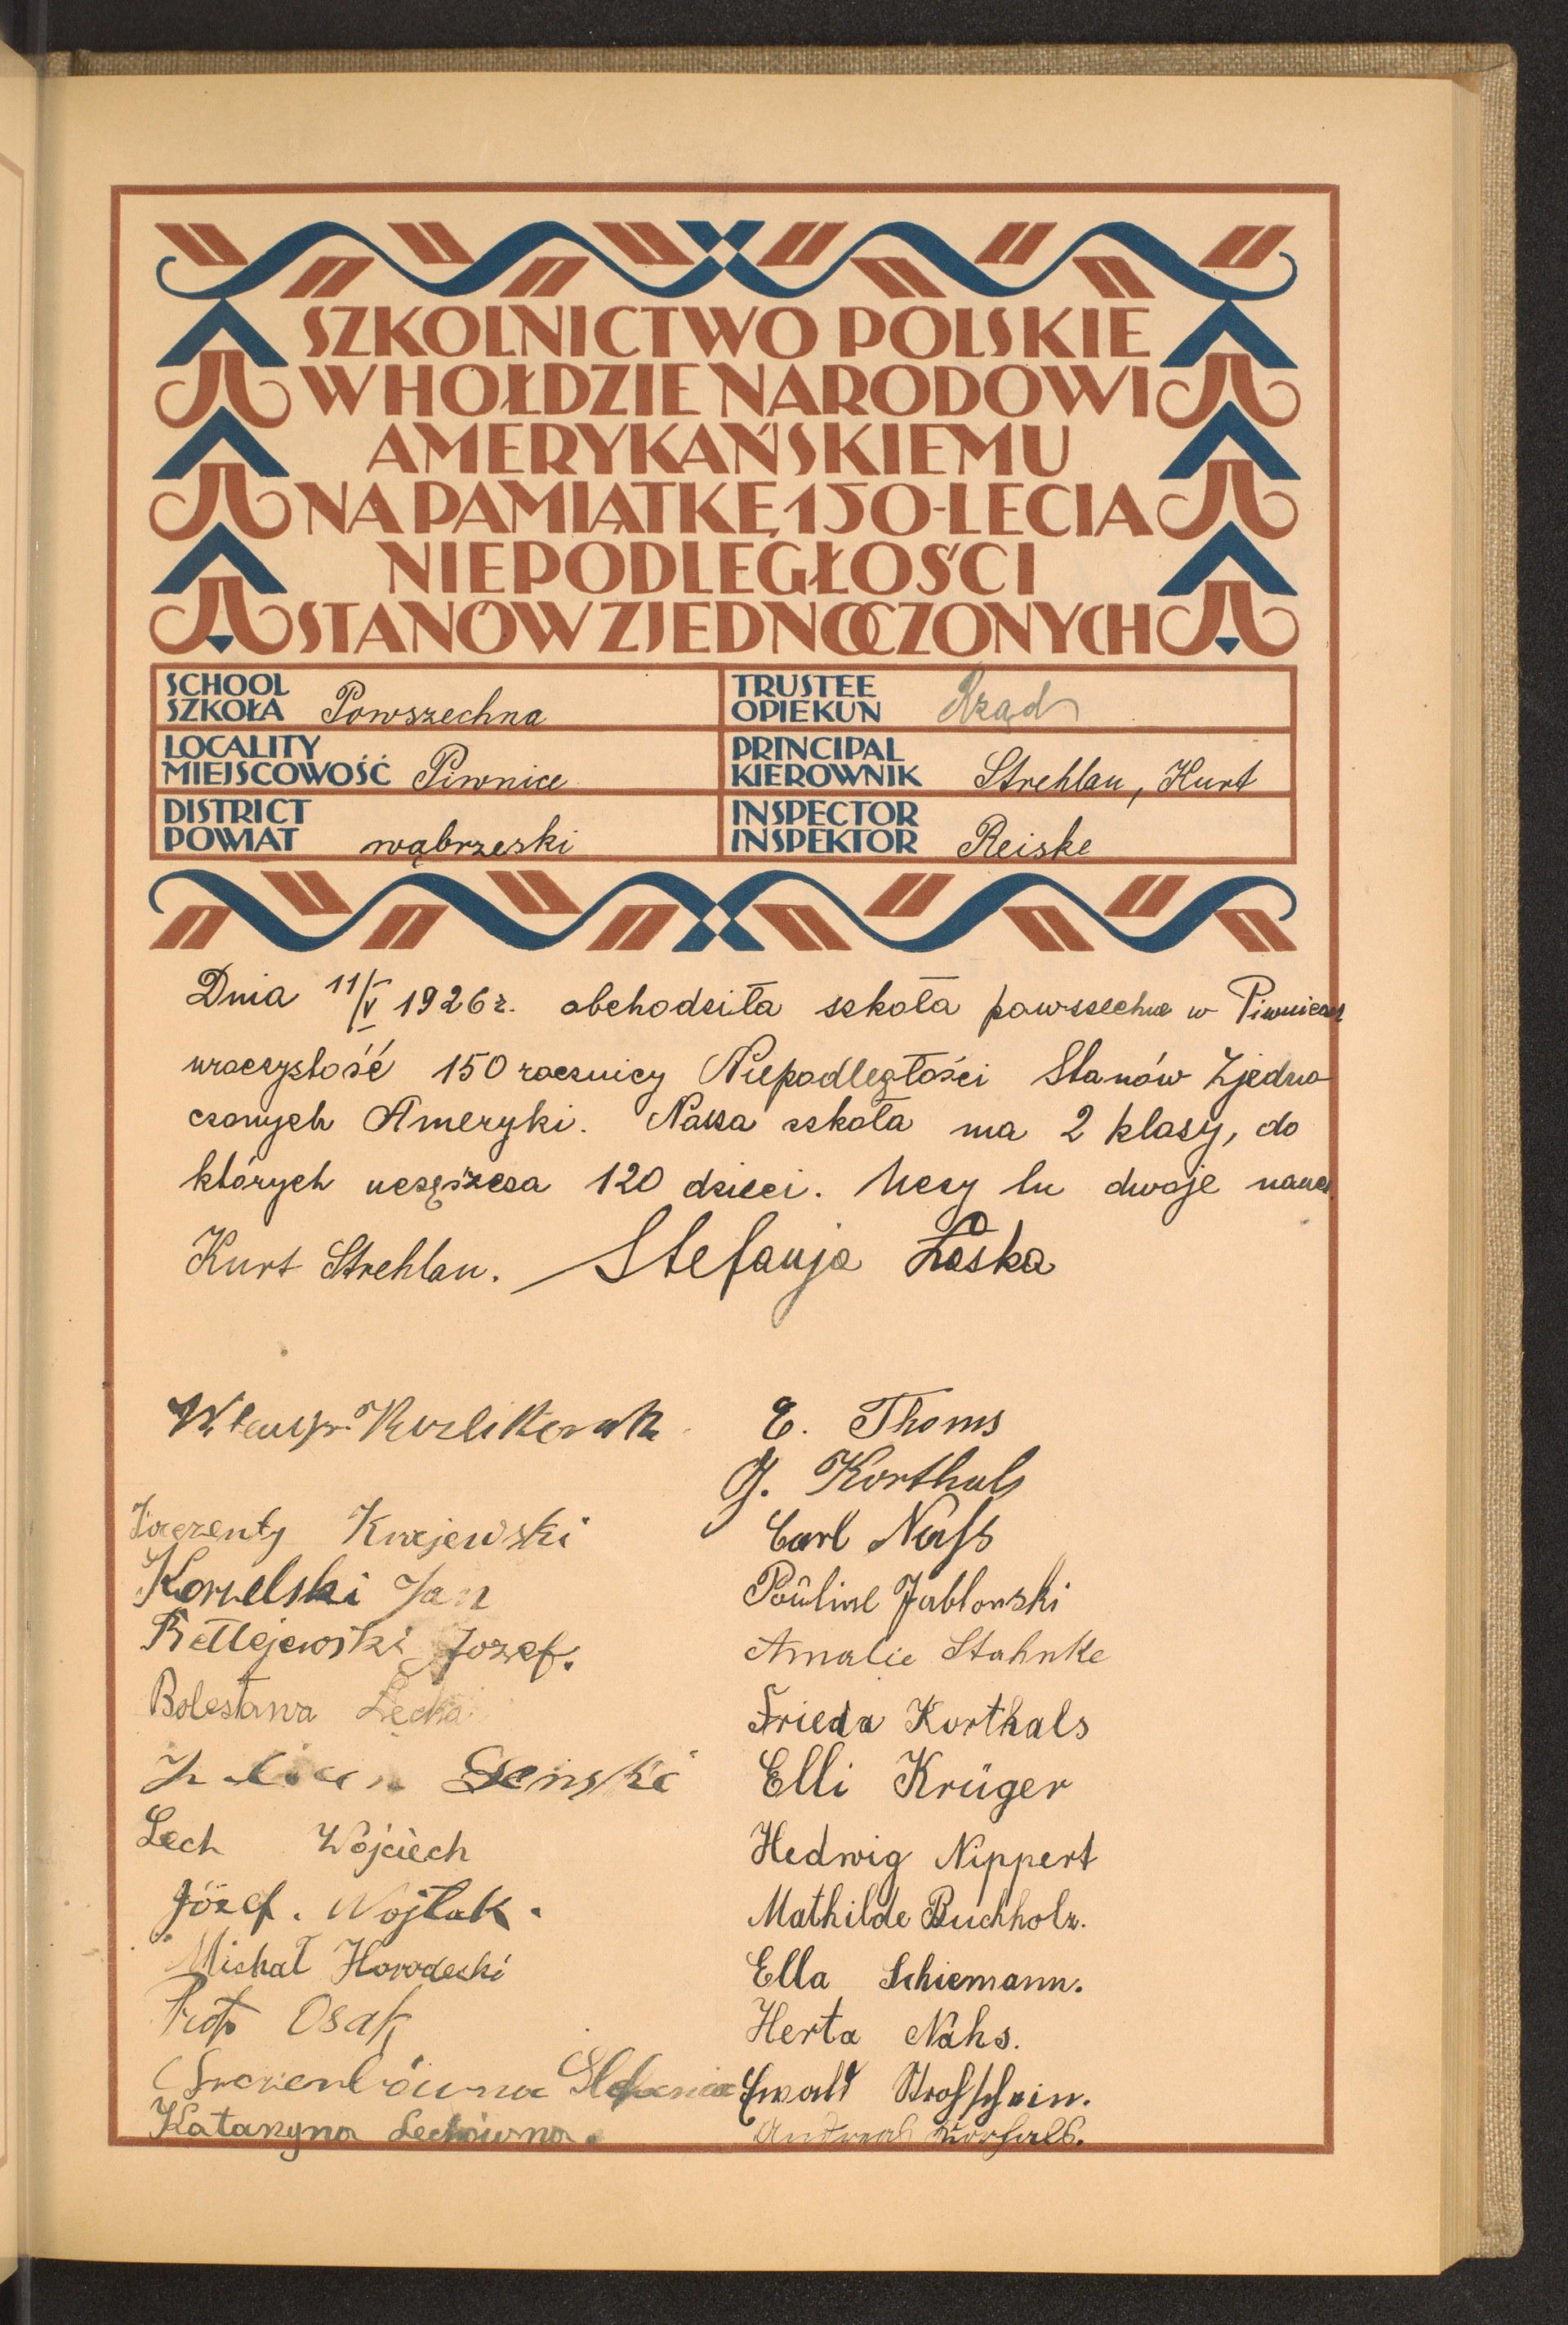 SZKOLNICTWO POLSKIE
W HOŁDZIE NARODOWI
AMERYKAŃSKIEMU
NA PAMIĄTKĘ 150-LECIA
NIEPODLEGŁOŚCI
STANÓW ZJEDNOCZONYCH
SCHOOL
SZKOŁA Powszechna
TRUSTEE
OPIEKUN Rząd
LOCALITY
MIEJSCOWOŚĆ Piwnice
PRINCIPAL
KIEROWNIK Strehlau, Kurt
DISTRICT
POWIAT wąbrzeski
INSPECTOR
INSPEKTOR Reiske
Dnia 11/V 1926 r. obchodziła szkoła powszechna w Piwnicach
uroczystość 150 rocznicy Niepodległości Stanów Zjedno
czonych Ameryki. Nasza szkoła ma 2 klasy, do
których uczęszcza 120 dzieci. Uczy tu dwoje naucz.
Kurt Strehlau. Stefanja Łaska
E. Thoms
J. Korthals
Krajewski
Carl Nass
Jan
Pauline Jablonski
Józef.
Amalie Stahnke
Bolesława Lecka
Frieda Korthals
Elli Krüger
Lech Wojciech
Hedwig Nippert
Józef. Wojtak.
Mathilde Buchholz.
Michał Horodecki
Ella Schiemann.
Osak
Herta Nähs.
Ewald Strohschein.
Katarzyna Lechówna.
Andreas Korthals.